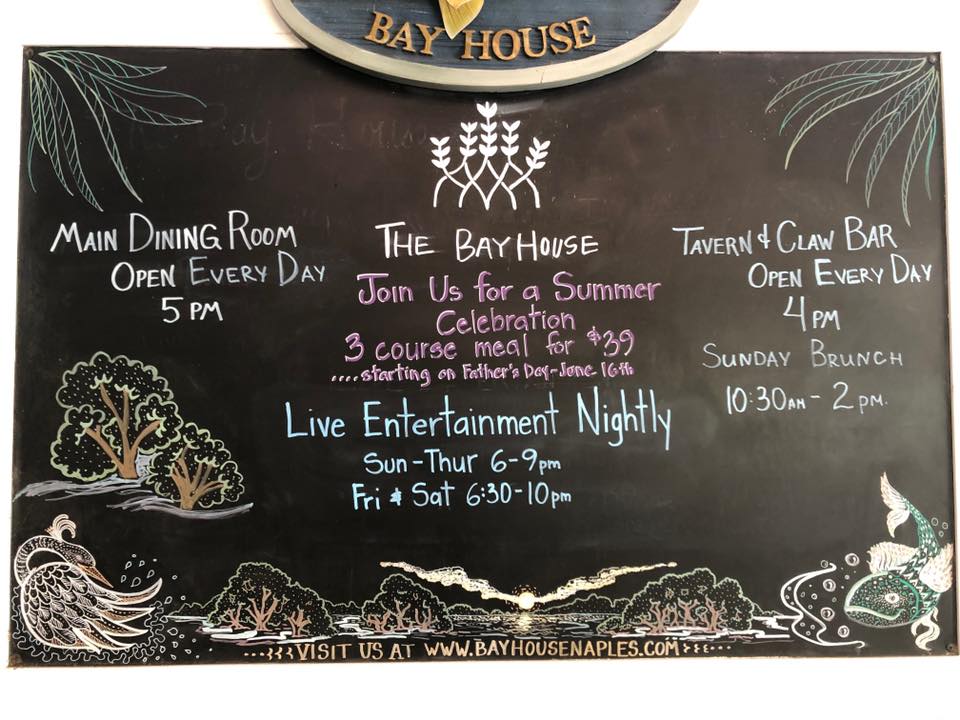 BAY HOUSE
MAIN DINING ROOM
OPEN EVERY DAY
5 PM
THE BAY HOUSE
Join Us for a Summer
Celebration
3 course meal for $39
....starting on Father's Day-June 16th
Live Entertainment Nightly
Sun-Thur 6-9pm
Fri & Sat 6:30-10pm
TAVERN & CLAW BAR
OPEN EVERY DAY
4 PM
SUNDAY BRUNCH
10:30AM - 2 PM.
VISIT US AT WWW.BAYHOUSENAPLES.COM